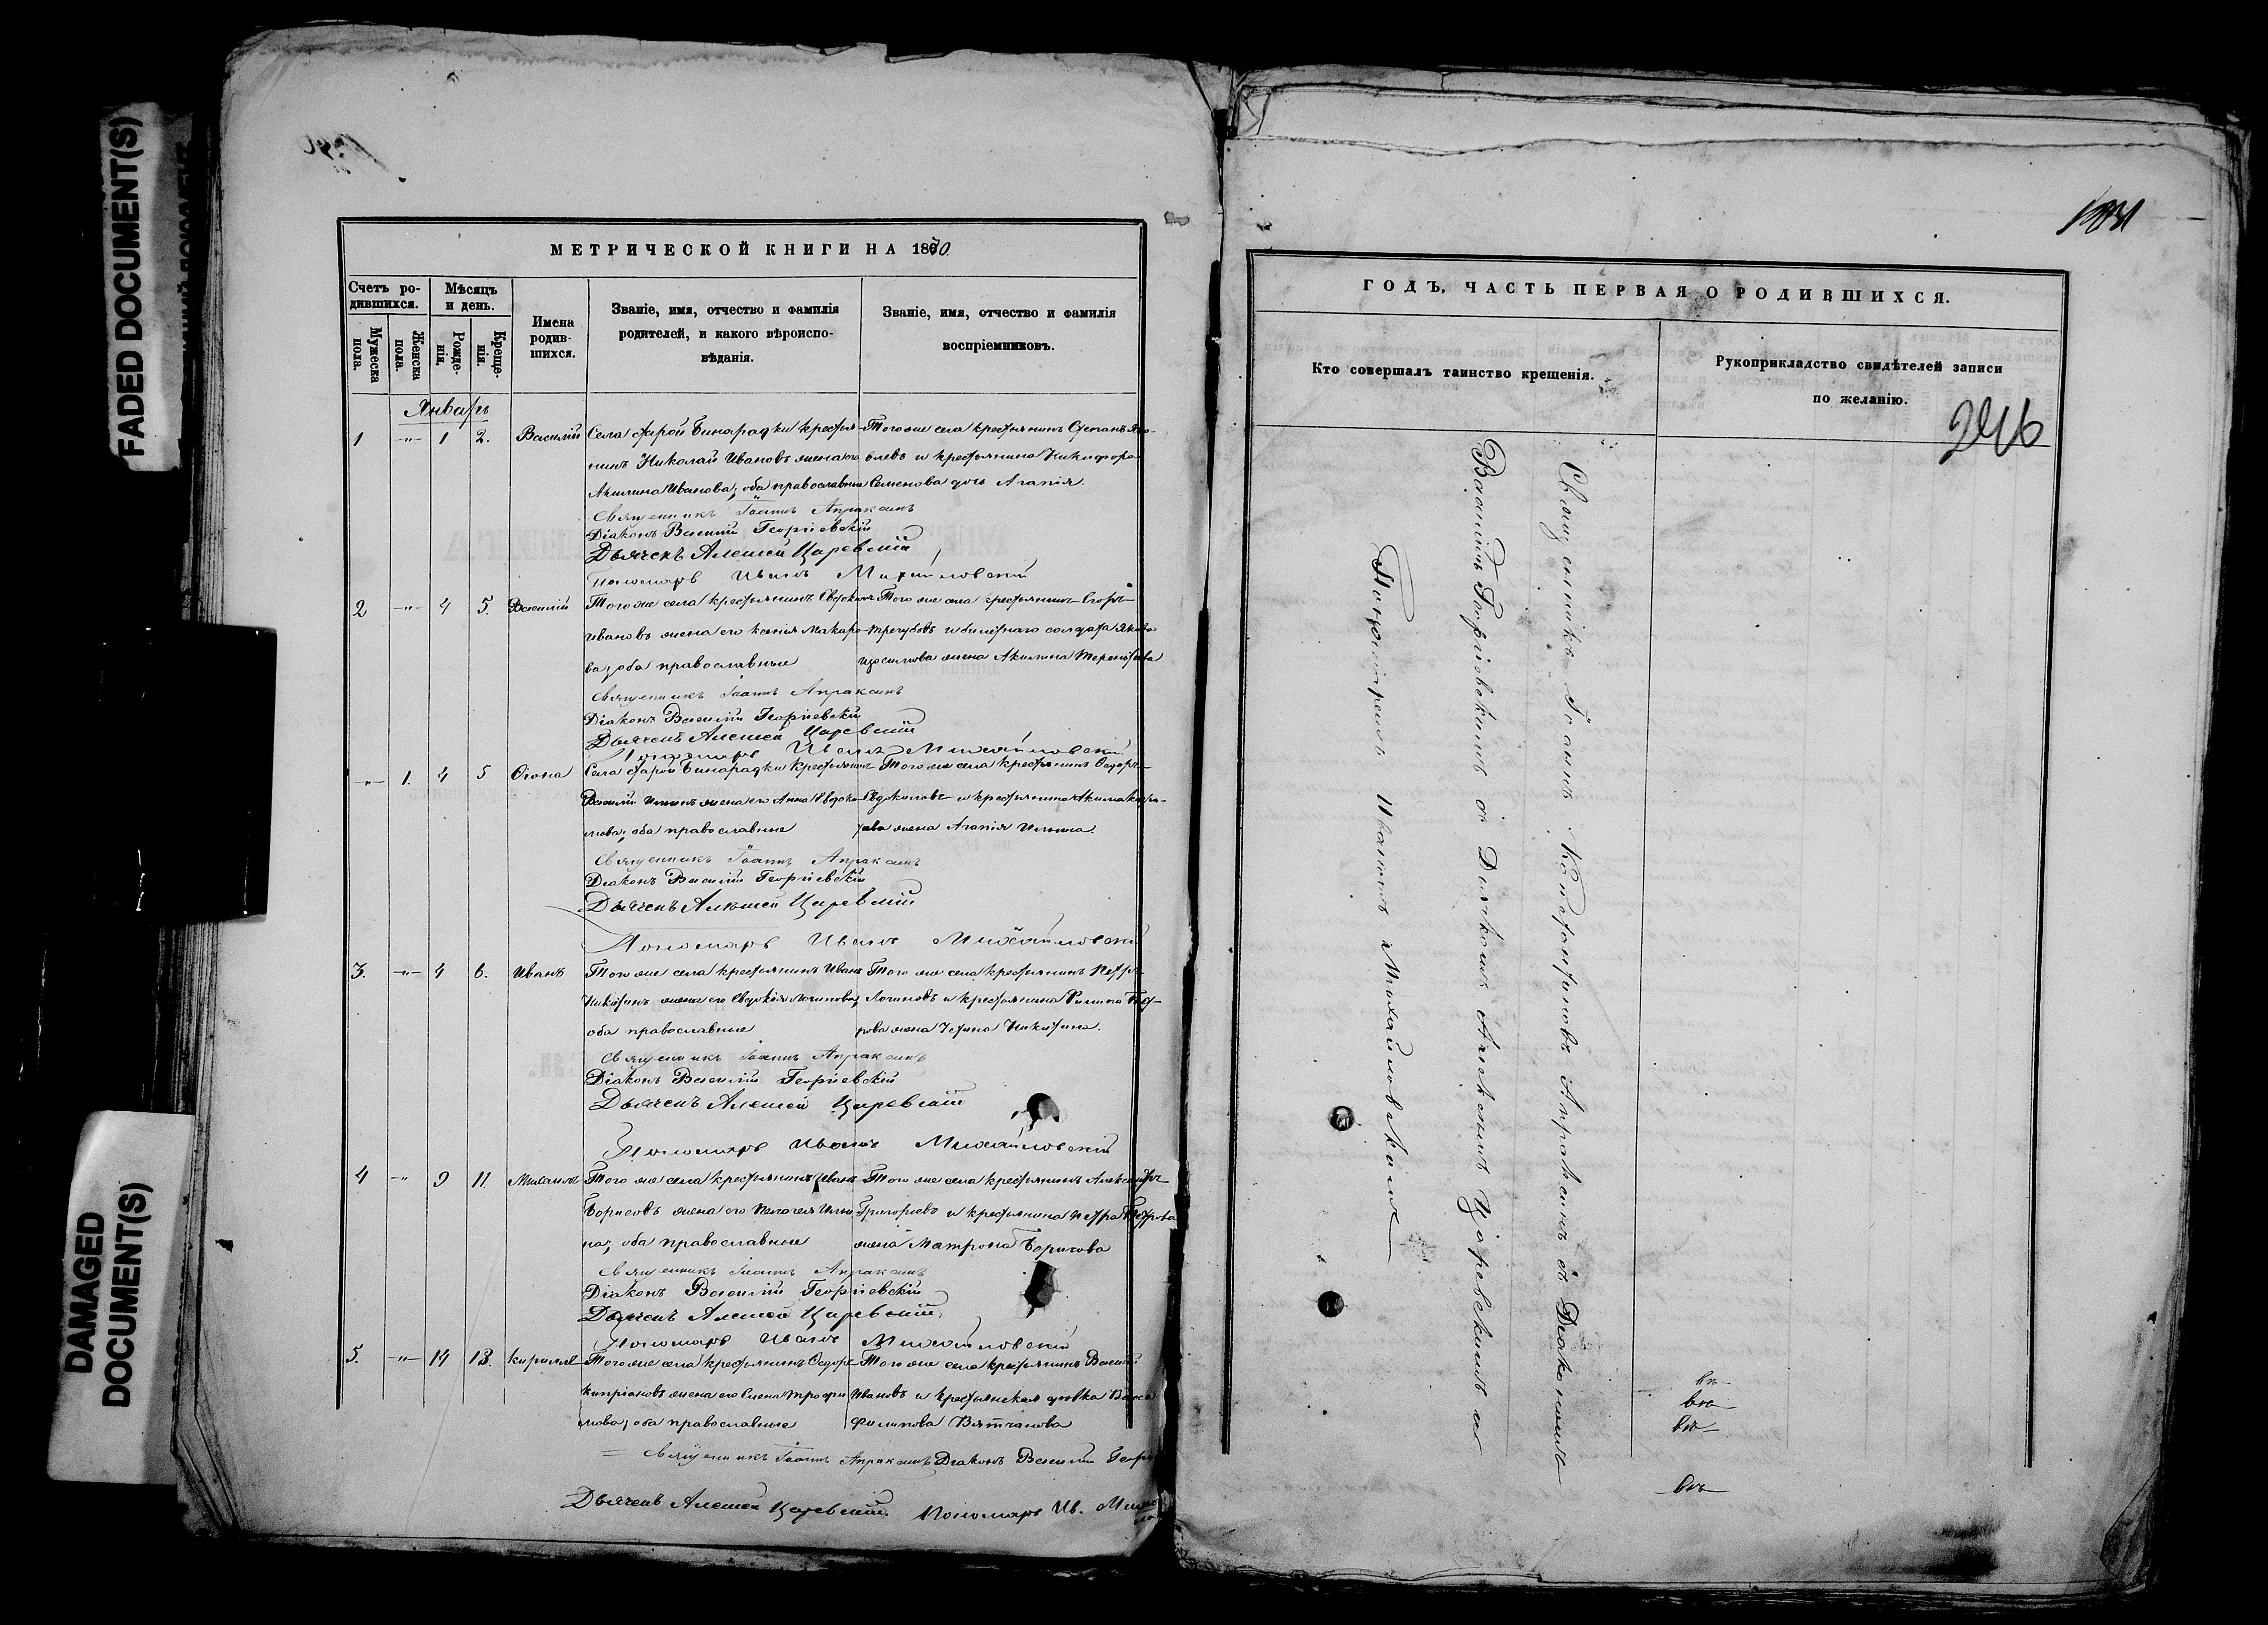 FADED DOCUMENT(S)
DAMAGED
DOCUMENT(S)
МЕТРИЧЕСКОЙ КНИГИ НА 1870.
Счетъ ро-
дившихся.
Мѣсяцъ
и день.
Мужеска
пола.
Женска
пола.
Рожде-
нія.
Креще-
нія.
Имена
родив-
шихся.
Званіе, имя, отчество и фамилія
родителей, и какого вѣроиспо-
вѣданія.
Званіе, имя, отчество и фамилія
воспріемниковъ.
Январь
1 -"- 1 2. Василій Села Старой Бинарадки крестья- Того же села крестьянинъ Степанъ Яко-
нинъ Николай Ивановъ жена его влевъ и крестьянина Никифора
Акилина Иванова; оба православные Семенова дочь Агапія.
Священникъ Іоаннъ Апраксинъ
Діаконъ Василій Георгіевскій
Дьячекъ Алексей Царевскій
Пономарь Иванъ Михайловскій
2 -"- 4 5. Василій Того же села крестьянинъ Евдокимъ Того же села крестьянинъ Егоръ
Ивановъ жена его Ксенія Макаро- Трегубовъ и билетнаго солдата Якова
ва; оба православные жена Акилина Терентьева
Священникъ Іоаннъ Апраксинъ
Діаконъ Василій Георгіевскій
Дьячекъ Алексей Царевскій
Пономарь Иванъ Михайловскій
-"- 1. 4 5 Села Старой Бинарадки крестьянинъ Того же села крестьянинъ Ѳедоръ
Василій Ильинъ жена его Анна Евдоки- Евдокимовъ и крестьянина Акима
мова; оба православные жена Агапія Ильина.
Священникъ Іоаннъ Апраксинъ
Діаконъ Василій Георгіевскій
Дьячекъ Алексей Царевскій
Пономарь Иванъ Михайловскій
3. -"- 4 6. Иванъ Того же села крестьянинъ Иванъ Того же села крестьянинъ Петръ
Никитинъ жена его Евдокія Логинова; Логиновъ и крестьянина Филипа
оба православные жена Никитина.
Священникъ Іоаннъ Апраксинъ
Діаконъ Василій Георгіевскій
Дьячекъ Алексей Царевскій
Пономарь Иванъ Михайловскій
4 -"- 9 11. Михаилъ Того же села крестьянинъ Иванъ Того же села крестьянинъ Александръ
Борисовъ жена его Пелагея Ильи- Григорьевъ и крестьянина Петра Петрова
на; оба православные жена Матрона Борисова
Священникъ Іоаннъ Апраксинъ
Діаконъ Василій Георгіевскій
Дьячекъ Алексей Царевскій
Пономарь Иванъ Михайловскій
5. -"- 14 18. Кириллъ Того же села крестьянинъ Ѳедоръ Того же села крестьянинъ Василій
Кипріановъ жена его Елена Трофи- Ивановъ и крестьянская дѣвка
мова; оба православные Филипова
Священникъ Іоаннъ Апраксинъ Діаконъ Василій Георгі
Дьячекъ Алексей Царевскій. Пономарь Ив.
ГОДЪ, ЧАСТЬ ПЕРВАЯ О РОДИВШИХСЯ.
Кто совершалъ таинство крещенія.
Рукоприкладство свидѣтелей записи
по желанію.
Священникъ Іоаннъ Константиновъ Апраксинъ съ Діакономъ
Василіемъ Георгіевскимъ съ Дьячкомъ Алексеемъ Царевскимъ и
Пономаремъ Иваномъ Михайловскимъ